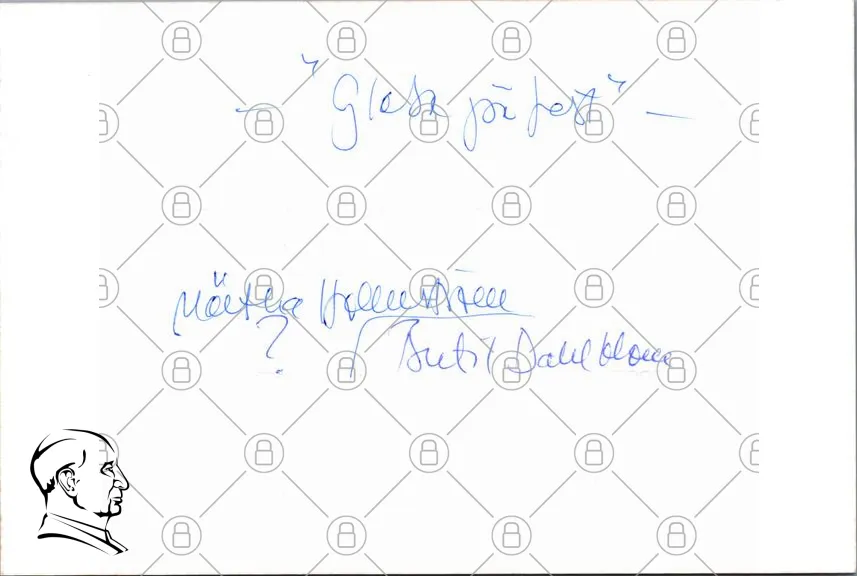 - "Glada på fest" -
Märtha Holmström
? Bertil Dahlblom